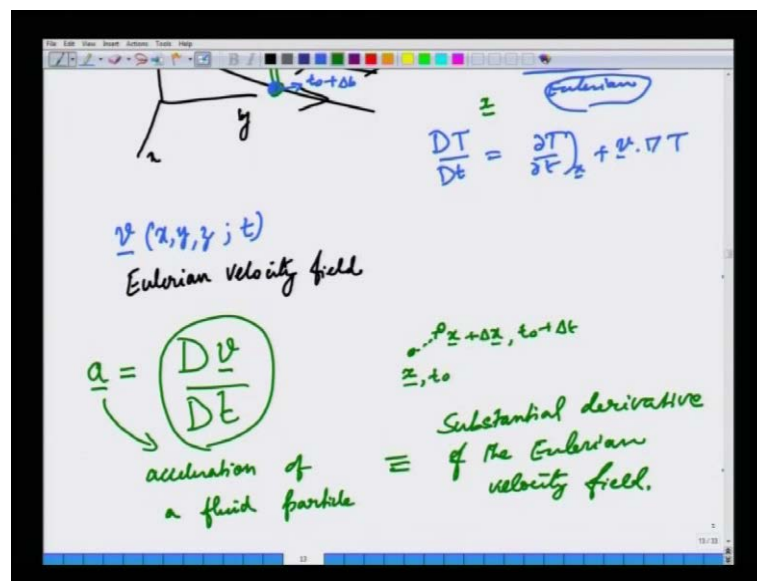 File Edit View Insert Actions Tools Help
t₀+Δt
Eulerian
y
x
x
DT/Dt = ∂T/∂t)ₓ + v·∇T
v (x, y, z ; t)
Eulerian velocity field
x + Δx, t₀+Δt
x, t₀
a = Dv/Dt
acceleration of
a fluid particle
≡
Substantial derivative
of the Eulerian
velocity field.
13/33
13